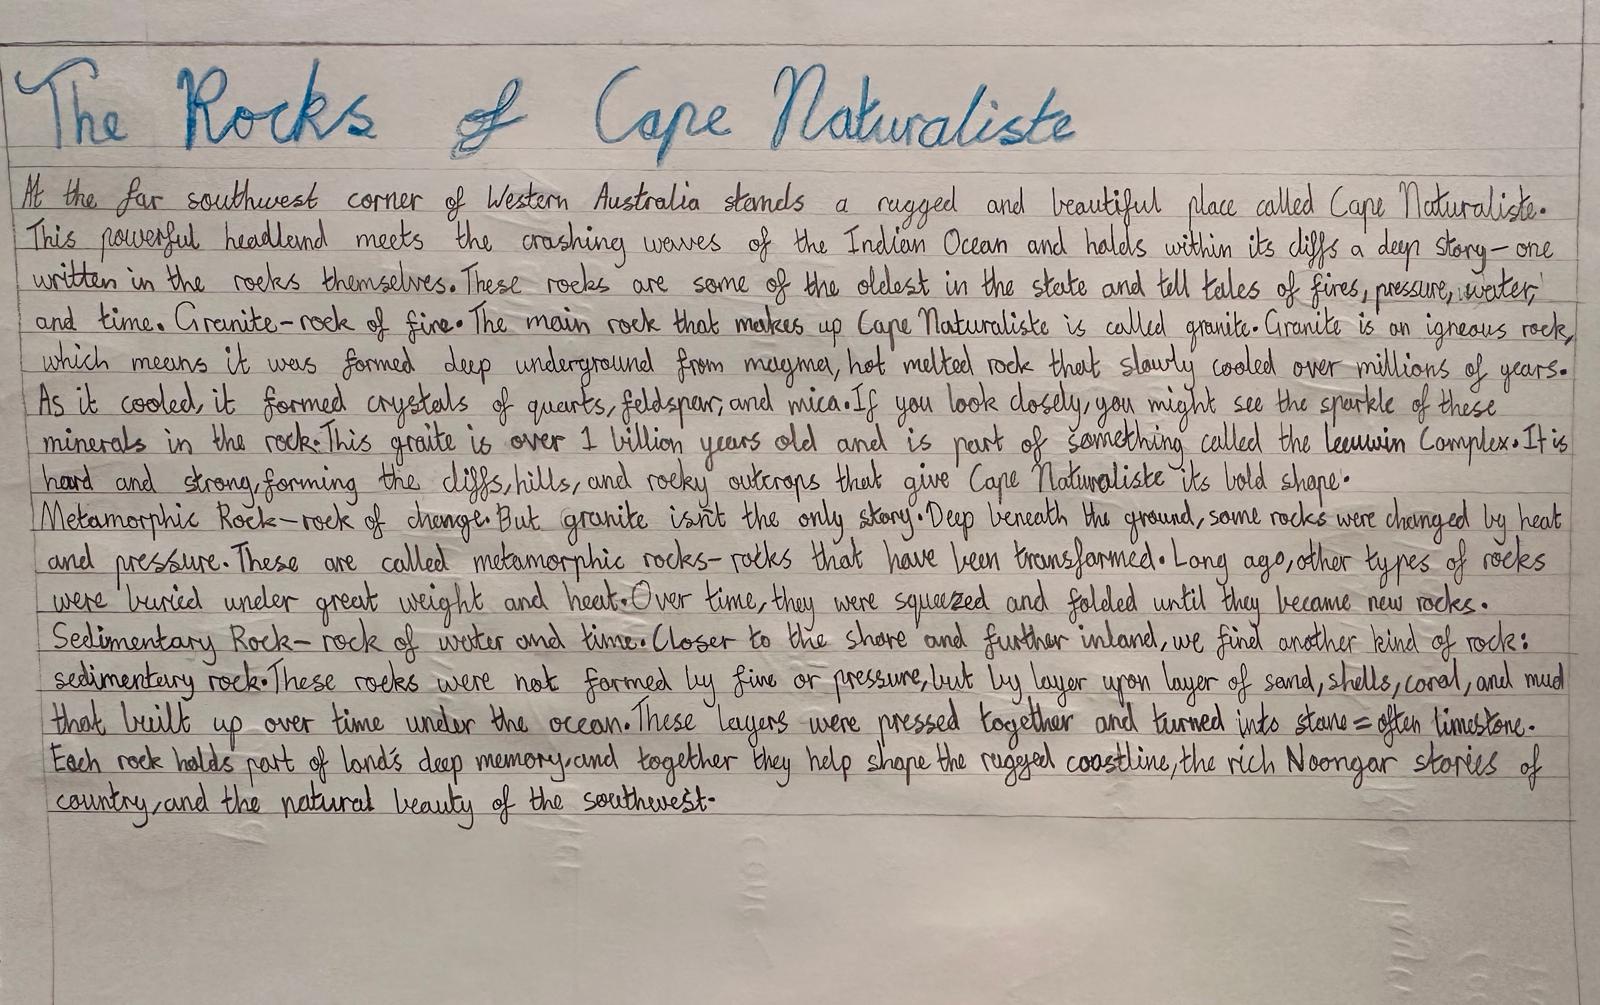 The Rocks of Cape Naturaliste
At the far southwest corner of Western Australia stands a rugged and beautiful place called Cape Naturaliste.
This powerful headland meets the crashing waves of the Indian Ocean and holds within its cliffs a deep story—one
written in the rocks themselves. These rocks are some of the oldest in the state and tell tales of fires, pressure, water,
and time. Granite-rock of fire. The main rock that makes up Cape Naturaliste is called granite. Granite is an igneous rock,
which means it was formed deep underground from magma, hot melted rock that slowly cooled over millions of years.
As it cooled, it formed crystals of quarts, feldspar, and mica. If you look closely, you might see the sparkle of these
minerals in the rock. This graite is over 1 billion years old and is part of something called the Leeuwin Complex. It is
hard and strong, forming the cliffs, hills, and rocky outcrops that give Cape Naturaliste its bold shape.
Metamorphic Rock-rock of change. But granite isn't the only story. Deep beneath the ground, some rocks were changed by heat
and pressure. These are called metamorphic rocks-rocks that have been transformed. Long ago, other types of rocks
were buried under great weight and heat. Over time, they were squeezed and folded until they became new rocks.
Sedimentary Rock- rock of water and time. Closer to the shore and further inland, we find another kind of rock:
sedimentary rock. These rocks were not formed by fire or pressure, but by layer upon layer of sand, shells, coral, and mud
that built up over time under the ocean. These layers were pressed together and turned into stone = often limestone.
Each rock holds part of land's deep memory, and together they help shape the rugged coastline, the rich Noongar stories of
country, and the natural beauty of the southwest.